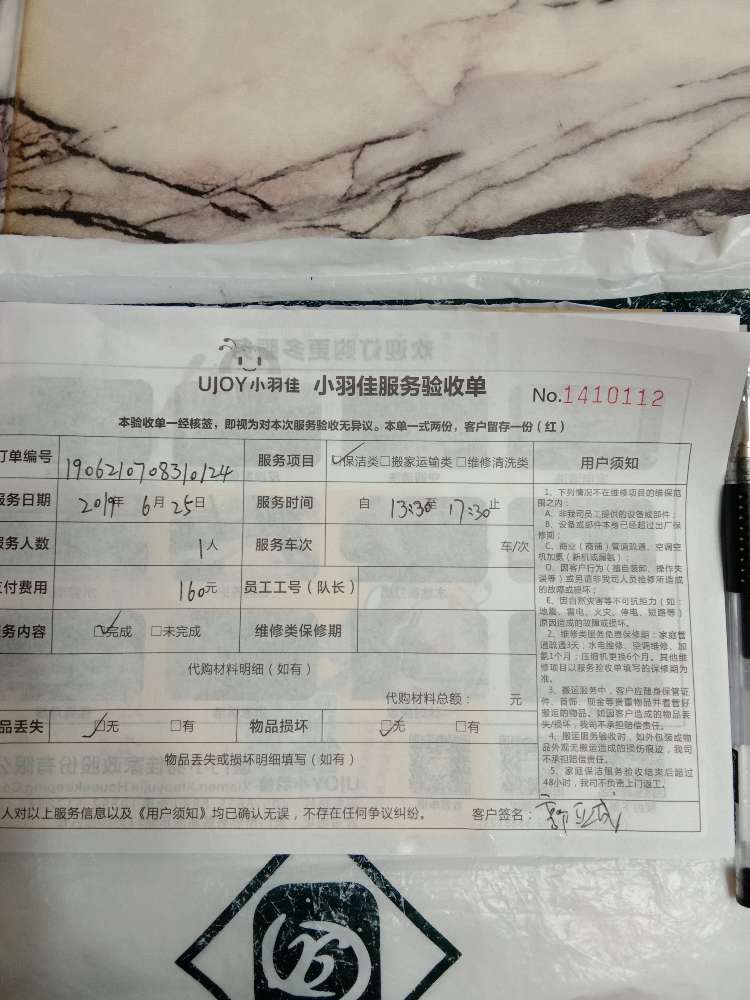 UJOY小羽佳 小羽佳服务验收单 No.1410112
本验收单一经核签，即视为对本次服务验收无异议。本单一式两份，客户留存一份（红）
订单编号 190621070831０124
服务项目 保洁类 搬家运输类 维修清洗类
服务日期 2019年 6月 25日
服务时间 自 13:30至 17:30止
服务人数 1人
服务车次 车/次
支付费用 160元
员工工号（队长）
服务内容 完成 未完成
维修类保修期
代购材料明细（如有）
代购材料总额： 元
品丢失 无 有
物品损坏 无 有
物品丢失或损坏明细填写（如有）
人对以上服务信息以及《用户须知》均已确认无误，不存在任何争议纠纷。 客户签名：
用户须知
1、下列情况不在维修项目的维保范
围之内：
A、非我司员工提供的设备或部件；
B、设备或部件本身已经超过出厂保
修期；
C、商业（商铺）管道疏通、空调空
机加氨（新机或漏氨）；
D、因客户行为（擅自装卸、操作失
误等）或另请非我司人员检修所造成
的故障或损坏；
E、因自然灾害等不可抗拒力（如：
地震、雷电、火灾、停电、短路等）
原因造成的故障或损坏。
2、维修类服务免息保修期：家庭管
道疏通3天；水电维修、空调维修、加
氨1个月；压缩机更换6个月。其他维
修项目以服务验收单填写的保修期为
准。
3、搬运服务中，客户应随身保管证
件、首饰、现金等贵重物品并看管好
搬运的物品。如因客户造成的物品丢
失/损坏，我司不承担赔偿责任。
4、搬运服务验收时，如外包装或物
品外观无搬运造成的损伤痕迹，我司
不承担赔偿责任。
5、家庭保洁服务验收结束后超过
48小时，我司不负责上门返工。